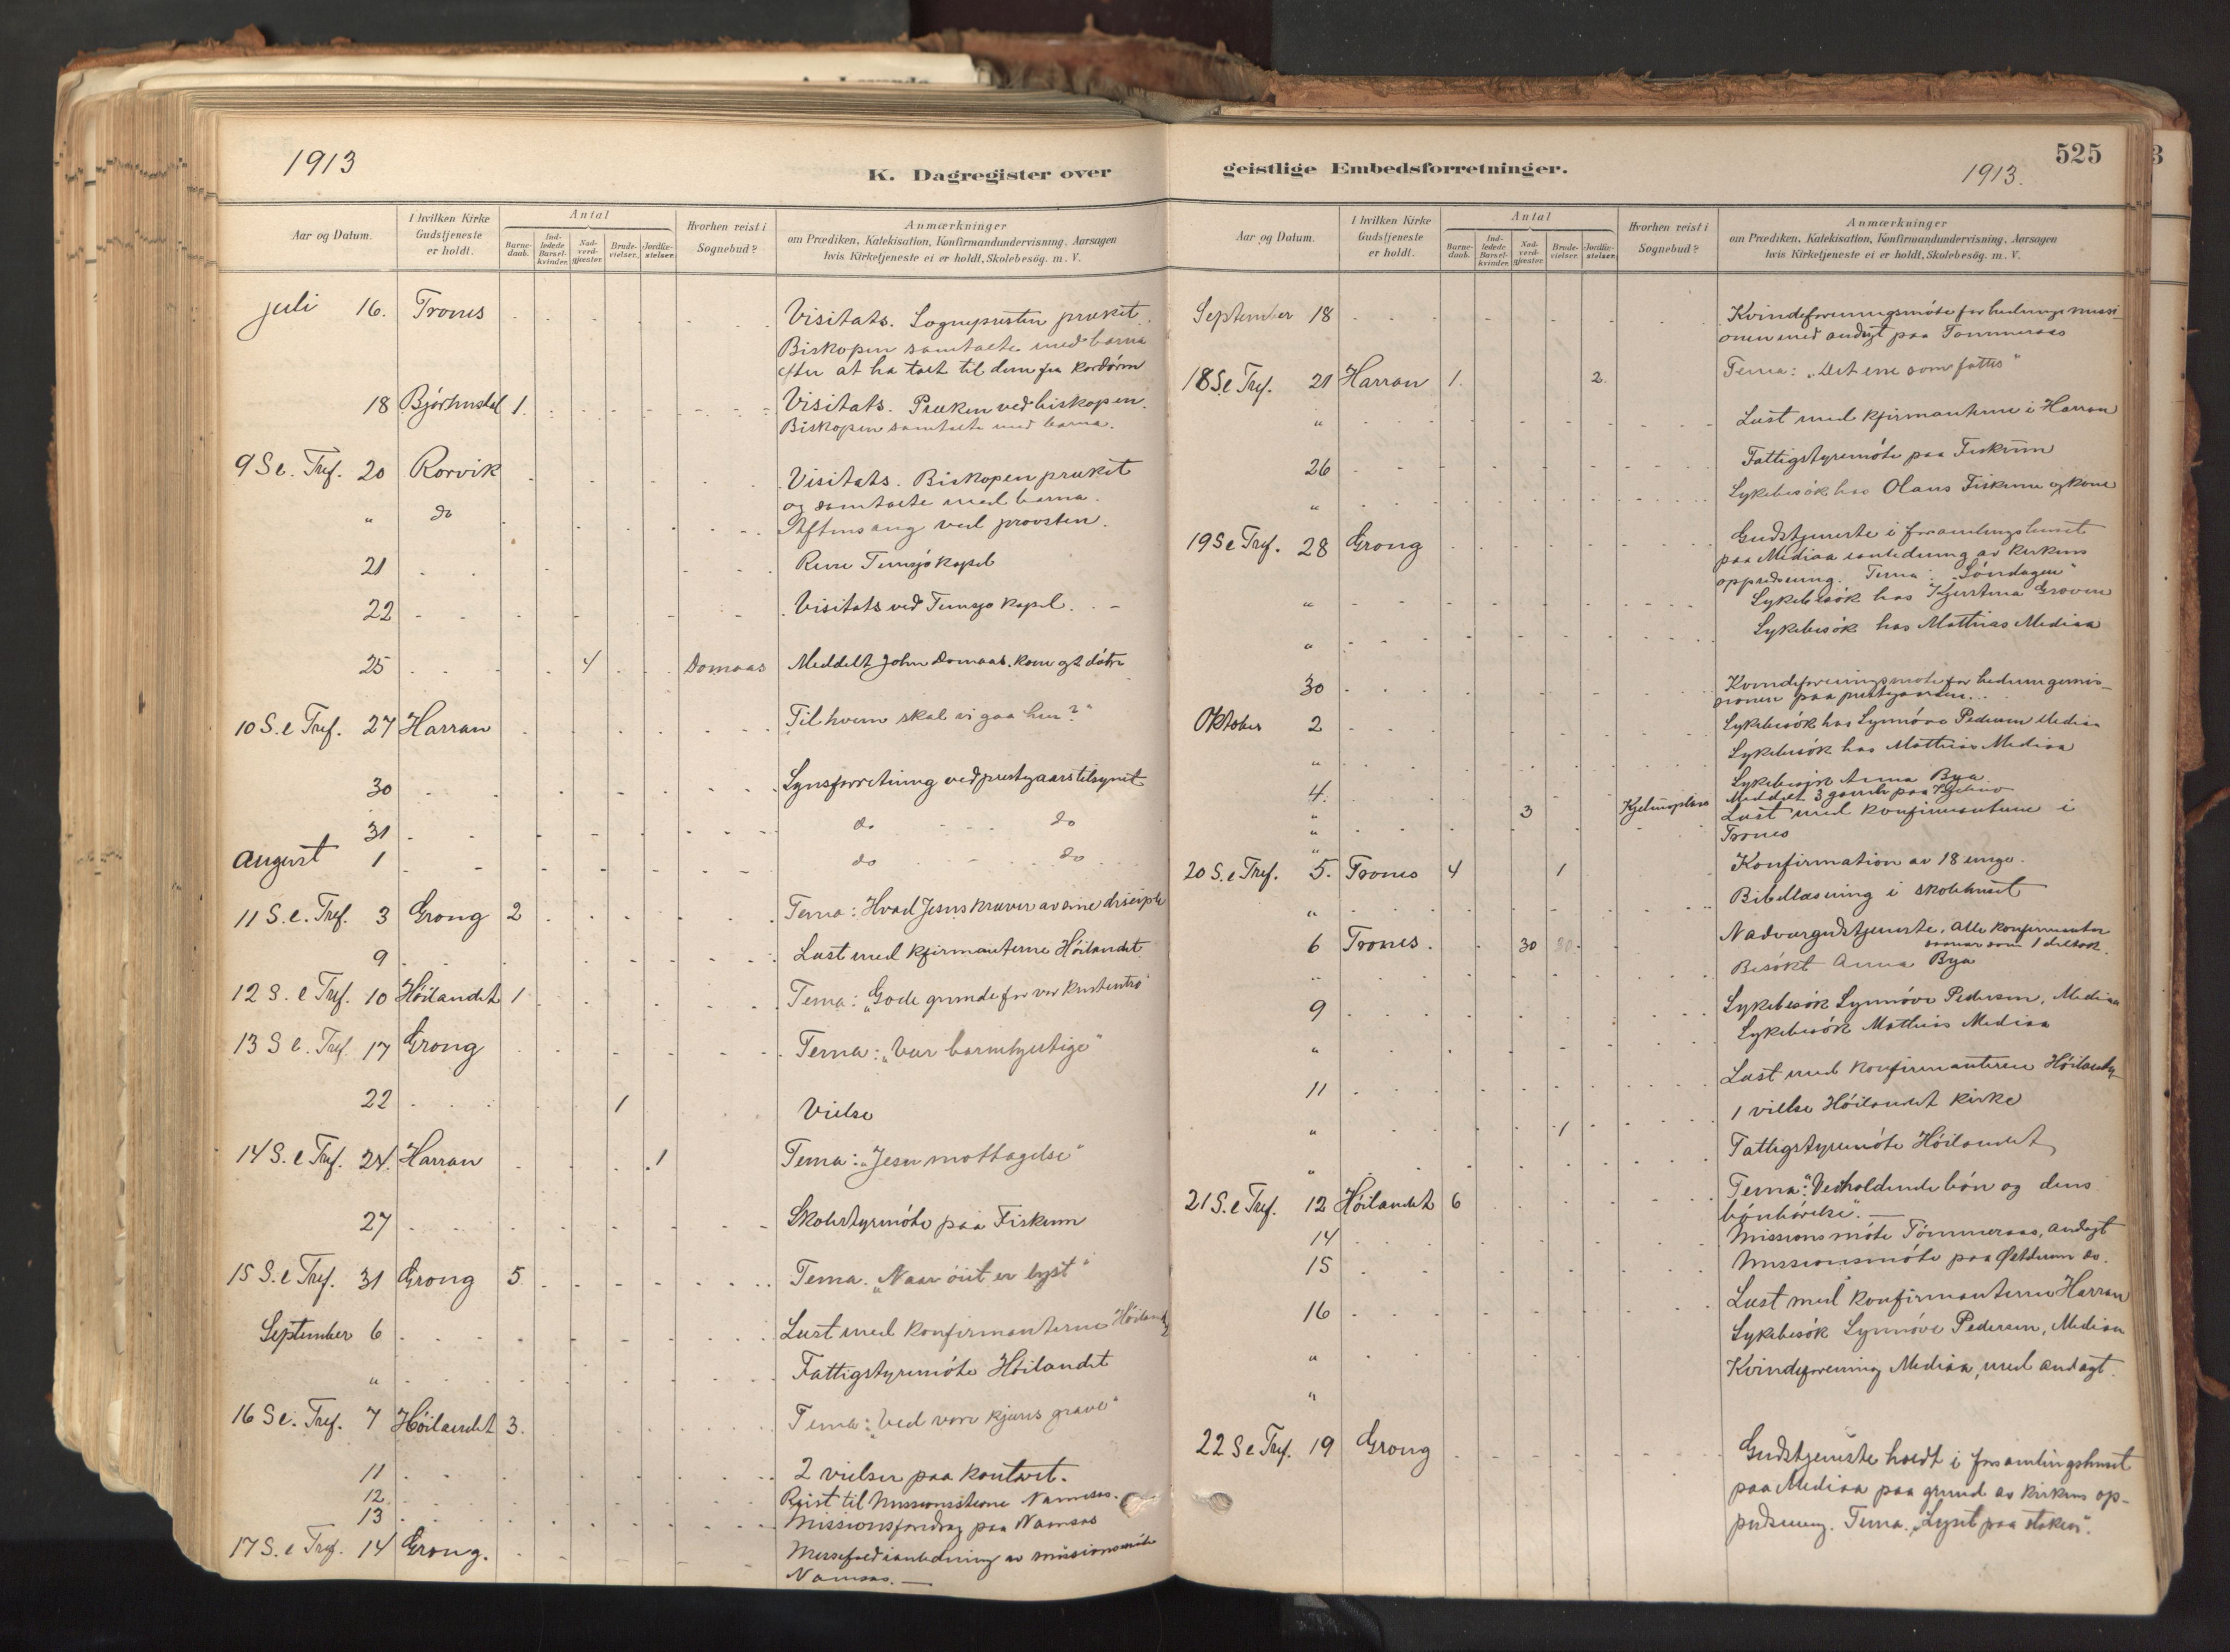 1913
K. Dagregister over
Aar og Datum.
I hvilken Kirke
Gudstjeneste
er holdt.
Antal
Barne-
daab.
Ind-
ledede
Barsel-
kvinder.
Nad-
verd-
gjæster.
Brude-
vielser.
Jordfæ-
stelser.
Hvorhen reist i
Sognebud?
Anmærkninger
om Prædiken, Katekisation, Konfirmandundervisning, Aarsagen
hvis Kirketjeneste ei er holdt, Skolebesög. m. V.
juli 16. Trones Visitats. Sognepresten præket.
Biskopen samtalte med barna
efter at ha talt til dem fra kordøren
18 Bjørhusdal 1. Visitats. Præken ved biskopen.
Biskopen samtalte med barna.
9 S e. Tref. 20 Rorvik Visitats. Biskopen præket
og samtalte med barna.
" do Aftensang ved provsten.
21 Reise Tunsjø kapel
22 Visitats ved Tunsjø kapel. -
25 4 Domaas Meddelt John Domaas, kone og 2 døtre
10 S. e Tref. 27 Harran "Til hvem skal vi gaa hen?"
30 Synsforretning ved prestgaarstilsynet
31 do do
August 1 do do
11 S. e. Tref. 3 Grong 2 Tema: Hvad Jesus kræver av sine disciple
9 Læst med kfirmanterne Höilandet
12 S. e Tref. 10 Höilandet 1 Tema: "Gode grunde for vor kristentro"
13 S e. Tref. 17 Grong Tema: "Vær barmhjertige"
22 1 Vielse
14 S. e Tref. 24. Harran 1 Tema: "Jesu mottagelse"
27 Skolestyremöte paa Fiskum
15 S. e Tref. 31 Grong 5 Tema. "Naar öiet er lyst"
September 6 Læst med konfirmanterne Höiland
" Fattigstyremöte Höilandet
16 S e. Tref. 7 Höilandet 3. Tema: "Ved vore kjæres grave"
11 2 vielser paa kontoret.
12 Reist til Missionsstevne Namsos.
13 Missionsforedrag paa Namsos
17 S. e Tref. 14 Grong. Messefald i anledning av missionsmöte
Namsos. —
525
geistlige Embedsforretninger.
1913.
Aar og Datum.
I hvilken Kirke
Gudstjeneste
er holdt.
Antal
Barne-
daab.
Ind-
ledede
Barsel-
kvinder.
Nad-
verd-
gjæster.
Brude-
vielser.
Jordfæ-
stelser.
Hvorhen reist i
Sognebud?
Anmærkninger
om Prædiken, Katekisation, Konfirmandundervisning, Aarsagen
hvis Kirketjeneste ei er holdt, Skolebesög. m. V.
September 18 Kvindeforeningsmöte for hedningemissi-
onen med andagt paa Tömmeraas
18 S e Tref. 21 Harran 1. 2. Tema: "Det ene som fattes"
" Læst med kfirmanterne i Harran
26 Fattigstyremöte paa Fiskum
" Sykebesök hos Olaus Fiskum og kone
19 S e Tref. 28 Grong Gudstjeneste i forsamlingshuset
paa Mediaa i anledning av kirkens
oppudsning. Tema: "Söndagen"
" Sykebesök hos Kjerstina Groven
" Sykebesök hos Mathias Mediaa
30 Kvindeforeningsmöte for hedningemis-
sionen paa prestgaarden.
Oktober 2 Sykebesök hos Synnöve Pedersen Mediaa
" Sykebesök hos Mathias Mediaa
4. Sykebesök Anna Bya
" 3 Meddelt 3 gamle paa
" Læst med konfirmanterne i
" Trones
20 S. e Tref. 5. Trones 4 1 Konfirmation av 18 unge.
" Bibellæsning i skolehuset
6 Trones. 30 Nadvergudstjeneste. Alle konfirmanter
saanær som 1 deltok.
" Besökt Anna Bya
9 Sykebesök Synnöve Pedersen, Mediaa
" Sykebesök Mathias Mediaa
11 Læst med konfirmanterne Höilandet
" 1 1 vielse Höilandet kirke
" Fattigstyremöte Höilandet
21 S. e Tref. 12 Höilandet 6 Tema: "Vedholdende bön og dens
bönhörelse". —
14 Missionsmöte Tömmeraas, andagt
15 Missionsmöte paa do.
16 Læst med konfirmanterne Harran
" Sykebesök Synnöve Pedersen, Mediaa
" Kvindeforening Mediaa, med andagt.
22 S e Tref. 19 Grong Gudstjeneste holdt i forsamlingshuset
paa Mediaa paa grund av kirkens op-
pudsning. Tema. "Lyset paa staken".